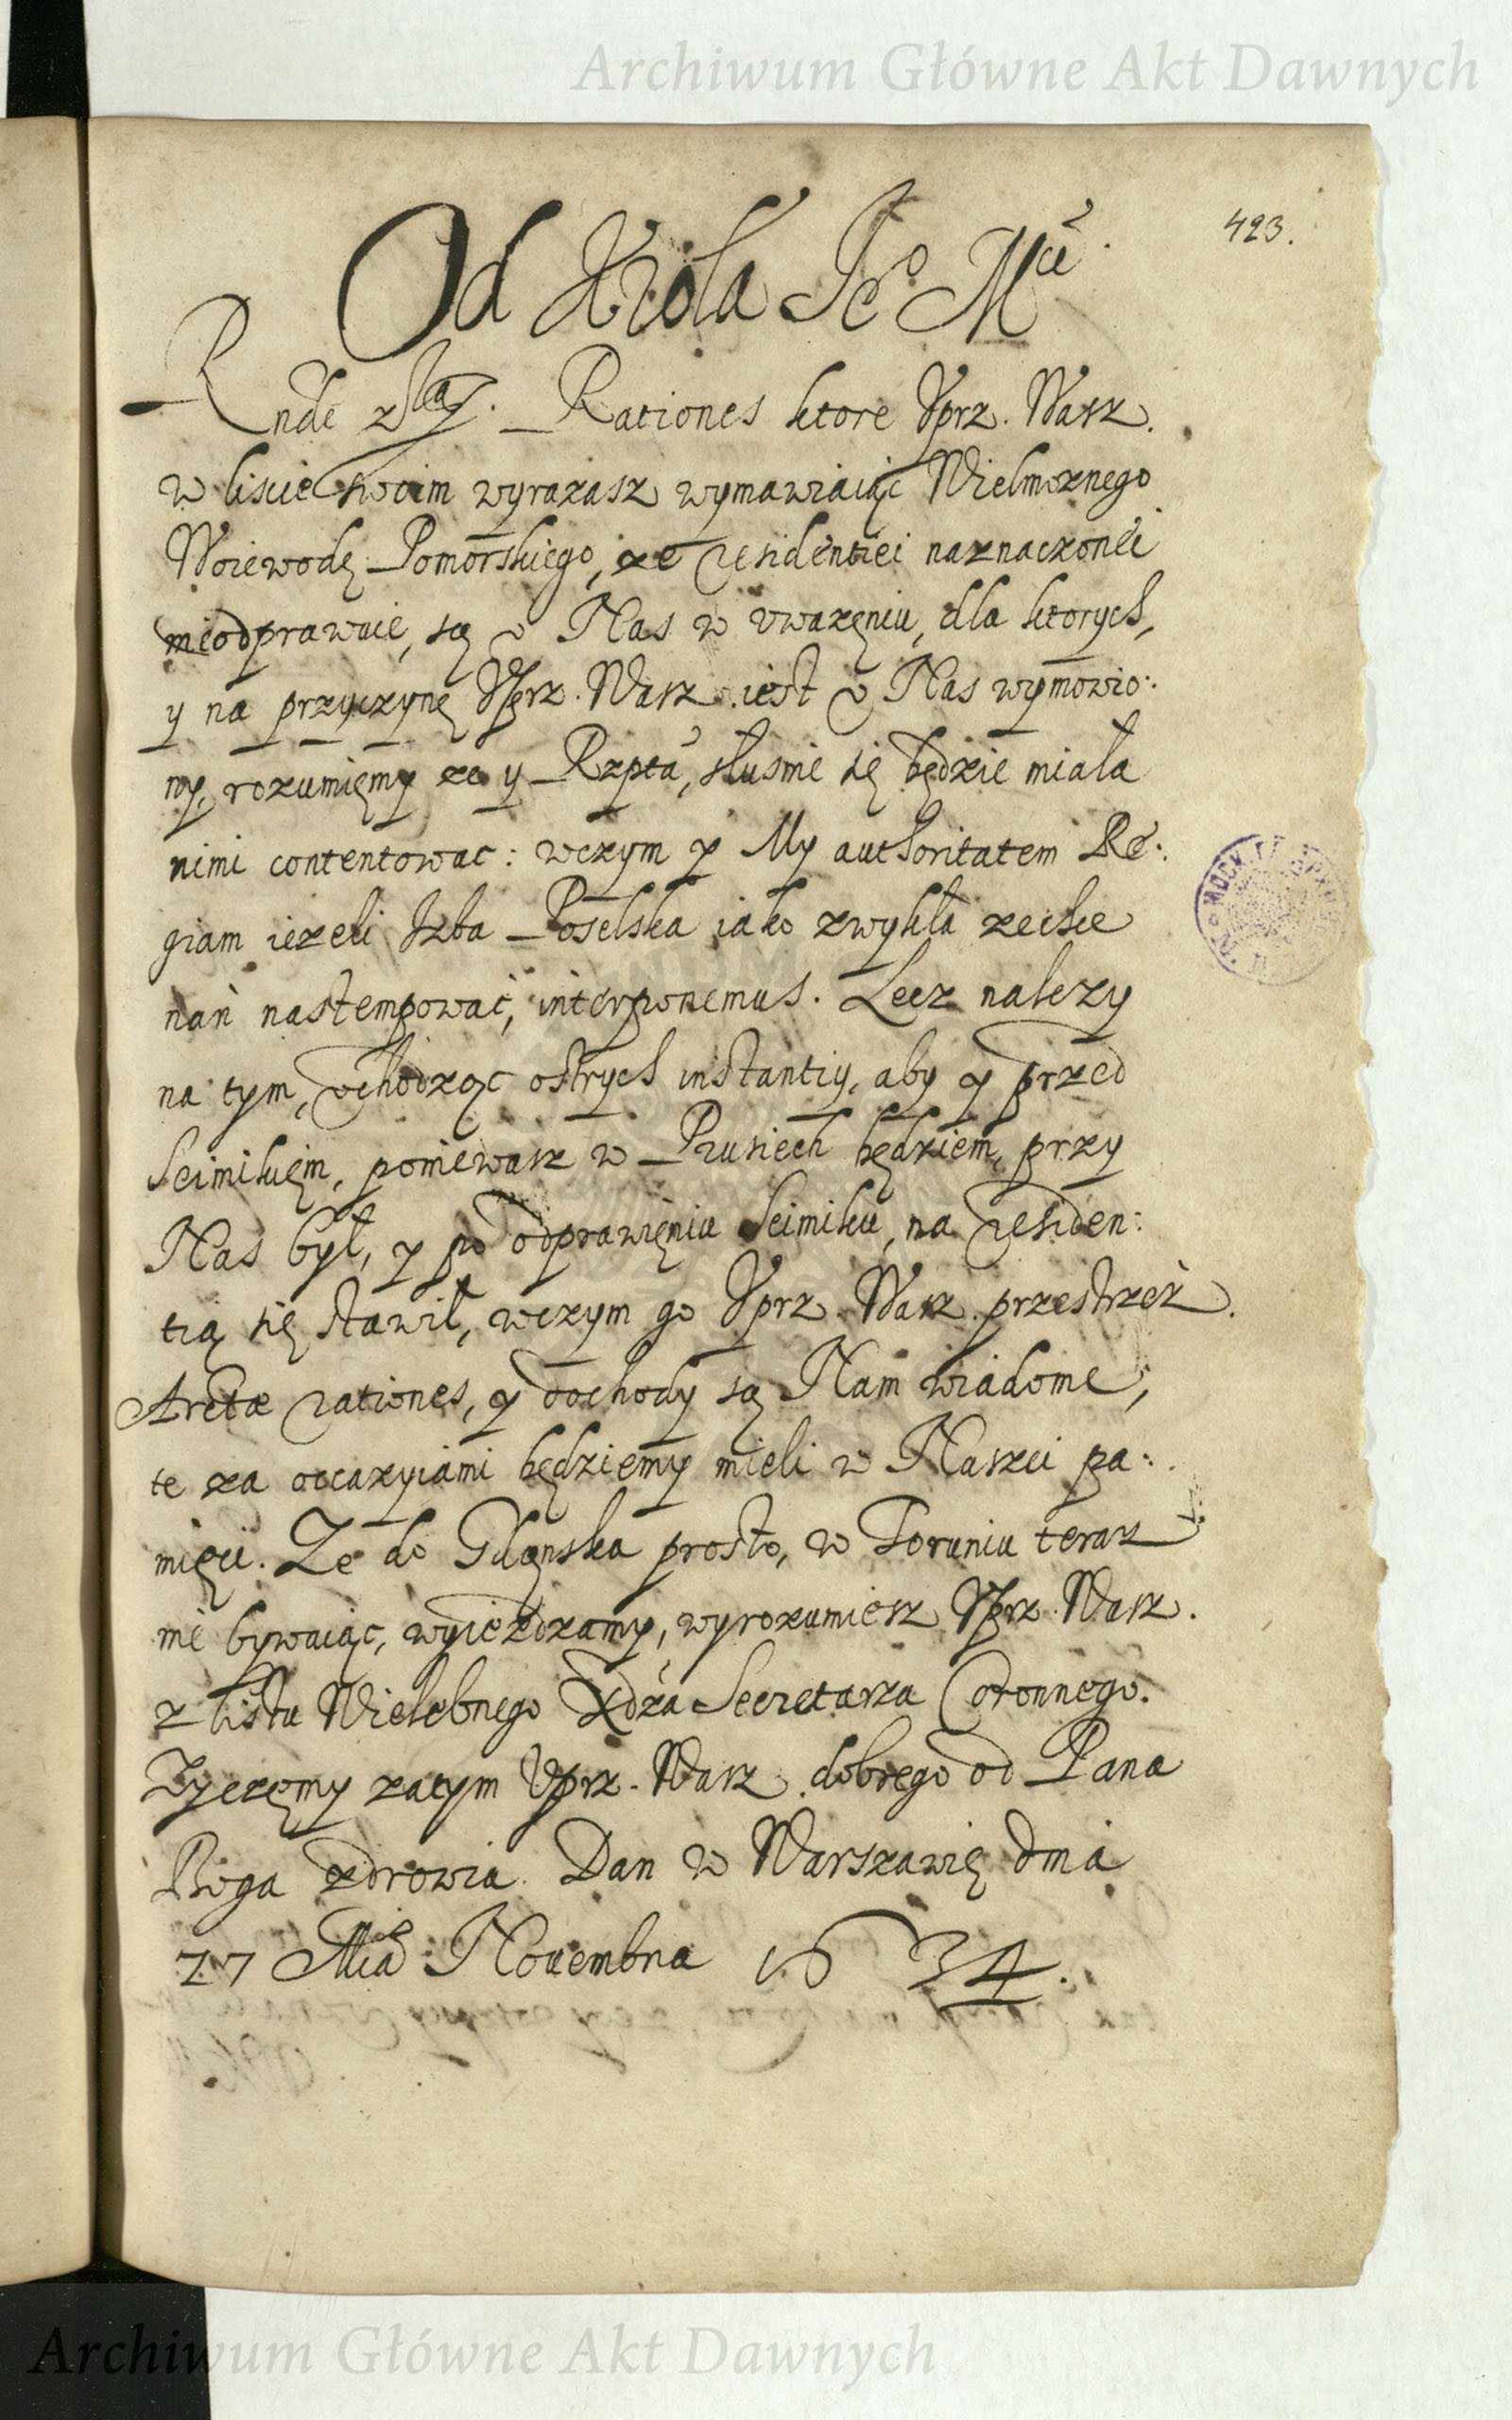 Archiwum Główne Akt Dawnych
423.
Od Krola Je⁰ Mci
Rnde Rationes ktore Vprz. Wasz.
w liscie swoim wyrazasz wymawiaiąc Wielmoznego
Woiewodę Pomorskiego, ze residentiei naznaczonei
nieodprawuie, są v Nas w vwazęniu, dla ktorych,
y na przyczynę Vprz. Wasz. iest v Nas wymowio:
ny, rozumięmy ze y Rzpta, słusnie się będzie miała
nimi contentowac: wczym y My authoritatem Re:
giam iezeli Izba Poselska iako zwykła zechce
nań nastempować, interponemus. Lecz nalezy
na tym, vchodząc ostrych instantiy, aby y przed
Seimikięm, poniewasz w Prusiech będziem, przy
Nas był, y po odprawięniu Seimiku, na residen:
tią się stawił, wczym go Vprz. Wasz. przestrzeż.
Arctæ rationes, y dochody są Nam wiadome,
te za occazyiami będziemy mieli w Naszei pa:
mięci. Ze do Gdąnska prosto, w Toruniu teraz
nie bywaiąc, wyiezdzamy, wyrozumiesz Vprz. Wasz.
z listu Wielebnego Xdza Secretarza Coronnego.
Zyczęmy zatym Vprz. Wasz. dobrego od Pana
Boga zdrowia. Dan w Warszawię dnia
27 Mca Nouembra 1634.
Archiwum Główne Akt Dawnych